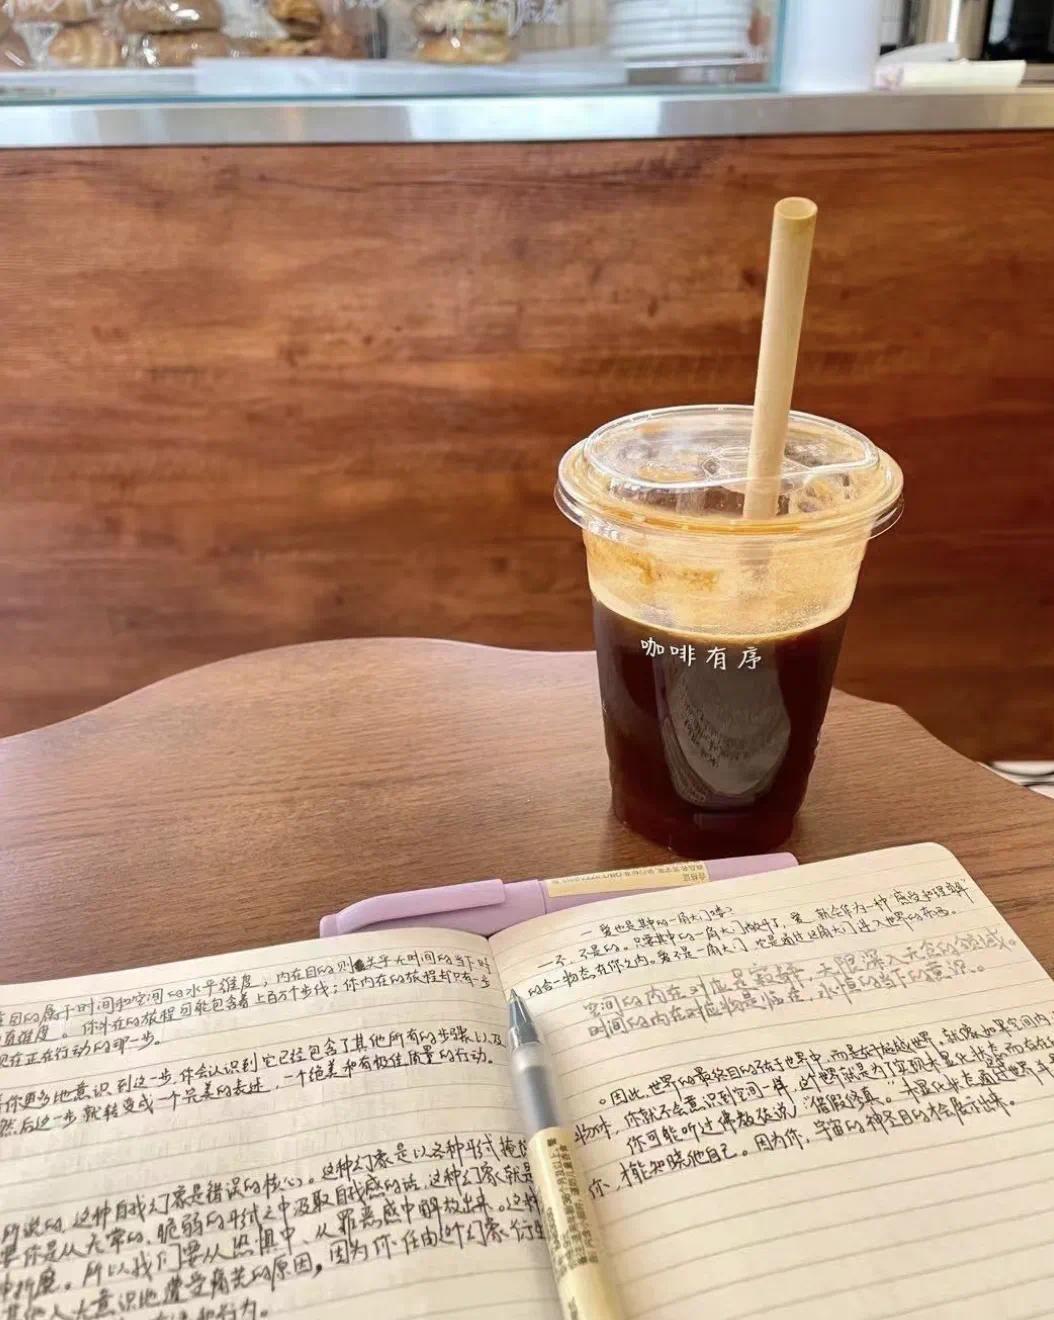 咖啡有序
一 爱也是其中的一扇大门喽?
一不,不是的。只要其中的一扇大门敞开了,爱,就会作为一种"感受和理解
的合一"物态在你之内。爱不是一扇大门,它是通过这扇大门进入世界的东西。
空间的内在对应是寂静,无限深入无念的领域。
时间的内在对应物是临在,永恒的当下的意识。
。因此,世界的最终目的不在于世界中,而是在于超越世界。就像如果空间内
物体,你就不会意识到空间一样,这个世界就是为了实现未显化状态而存在
你可能听过佛教徒说,"借假修真。"未显化状态通过世界
你,才能知晓他自己。因为你,宇宙的神圣目的才会展示出来。
目的属于时间和空间的水平维度;内在目的则关乎无时间的当下时
直维度。你外在的旅程可能包含着上百万个步伐;你内在的旅程却只有一步
现在正在行动的那一步。
你更多地意识到这一步,你会认识到它已经包含了其他所有的步骤以及
然后这一步就转变成一个完美的表述,一个绝美和有极佳质量的行动。
所说的,这种自我幻象是错误的核心。这种幻象是以各种形式掩
要你是从无常的、脆弱的形式之中汲取自我感的话,这种幻象就是
种折磨。所以我们要从恐惧中、从罪恶感中解放出来。这种
其他人无意识地遭受痛苦的原因,因为你任由这个幻象衍生
和行为。